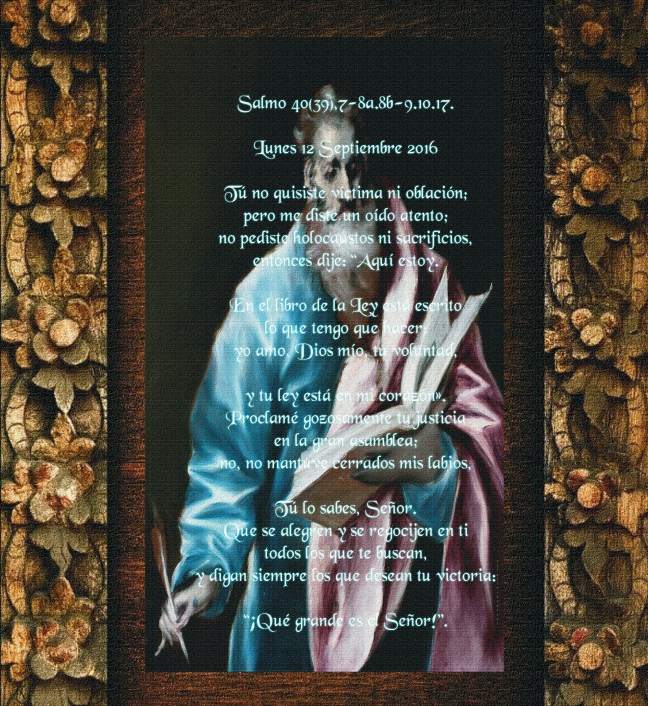 Salmo 40(39),7-8a.8b-9.10.17.
Lunes 12 Septiembre 2016
Tú no quisiste víctima ni oblación;
pero me diste un oído atento;
no pediste holocaustos ni sacrificios,
entonces dije: "Aquí estoy.
En el libro de la Ley está escrito
lo que tengo que hacer:
yo amo, Dios mío, tu voluntad,
y tu ley está en mi corazón».
Proclamé gozosamente tu justicia
en la gran asamblea;
no, no mantuve cerrados mis labios,
Tú lo sabes, Señor.
Que se alegren y se regocijen en ti
todos los que te buscan,
y digan siempre los que desean tu victoria:
"¡Qué grande es el Señor!".